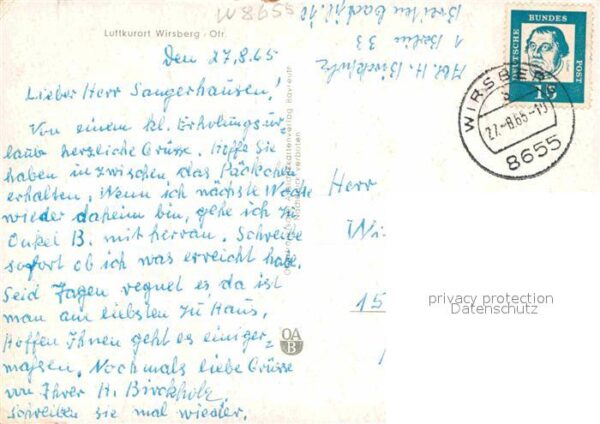 5598M
Luftkurort Wirsberg · Ofr.
Den 27.8.65
Lieber Herr Sangerhausen!
Von einem kl. Erholungsur-
laub herzliche Grüsse. Hoffe Sie
haben inzwischen das Päckchen
erhalten. Wenn ich nächste Woche
wieder daheim bin, gehe ich zu
Onkel B. mit herran. Schreibe
sofort ob ich was erreicht habe.
Seid Tagen regnet es da ist
man am liebsten zu Haus,
Hoffen Ihnen geht es einiger-
massen. Nochmals liebe Grüsse
von Ihrer H. Birckholz
Schreiben sie mal wieder.
Abs. H. Birckholz
1 Berlin 33
Breitenbachpl. 10
Ansichtskartenverlag Bayreuth
verboten
OA
B
DEUTSCHE
BUNDES
POST
15
WIRSBERG
27.-8.65-19
8655
Herr
15
privacy protection
Datenschutz